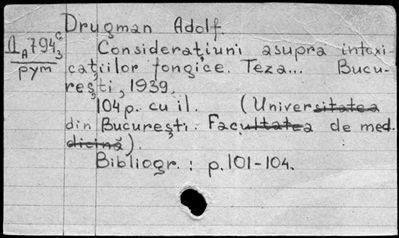 Drugman Adolf.
II A 794 3 C
pym
Considerațiuni asupra intoxi-
cațiilor fongice. Teza... Bucu-
rești, 1939.
104 p. cu il. (Universitatea
din București. Facultatea de med.
dicină).
Bibliogr.: p. 101-104.